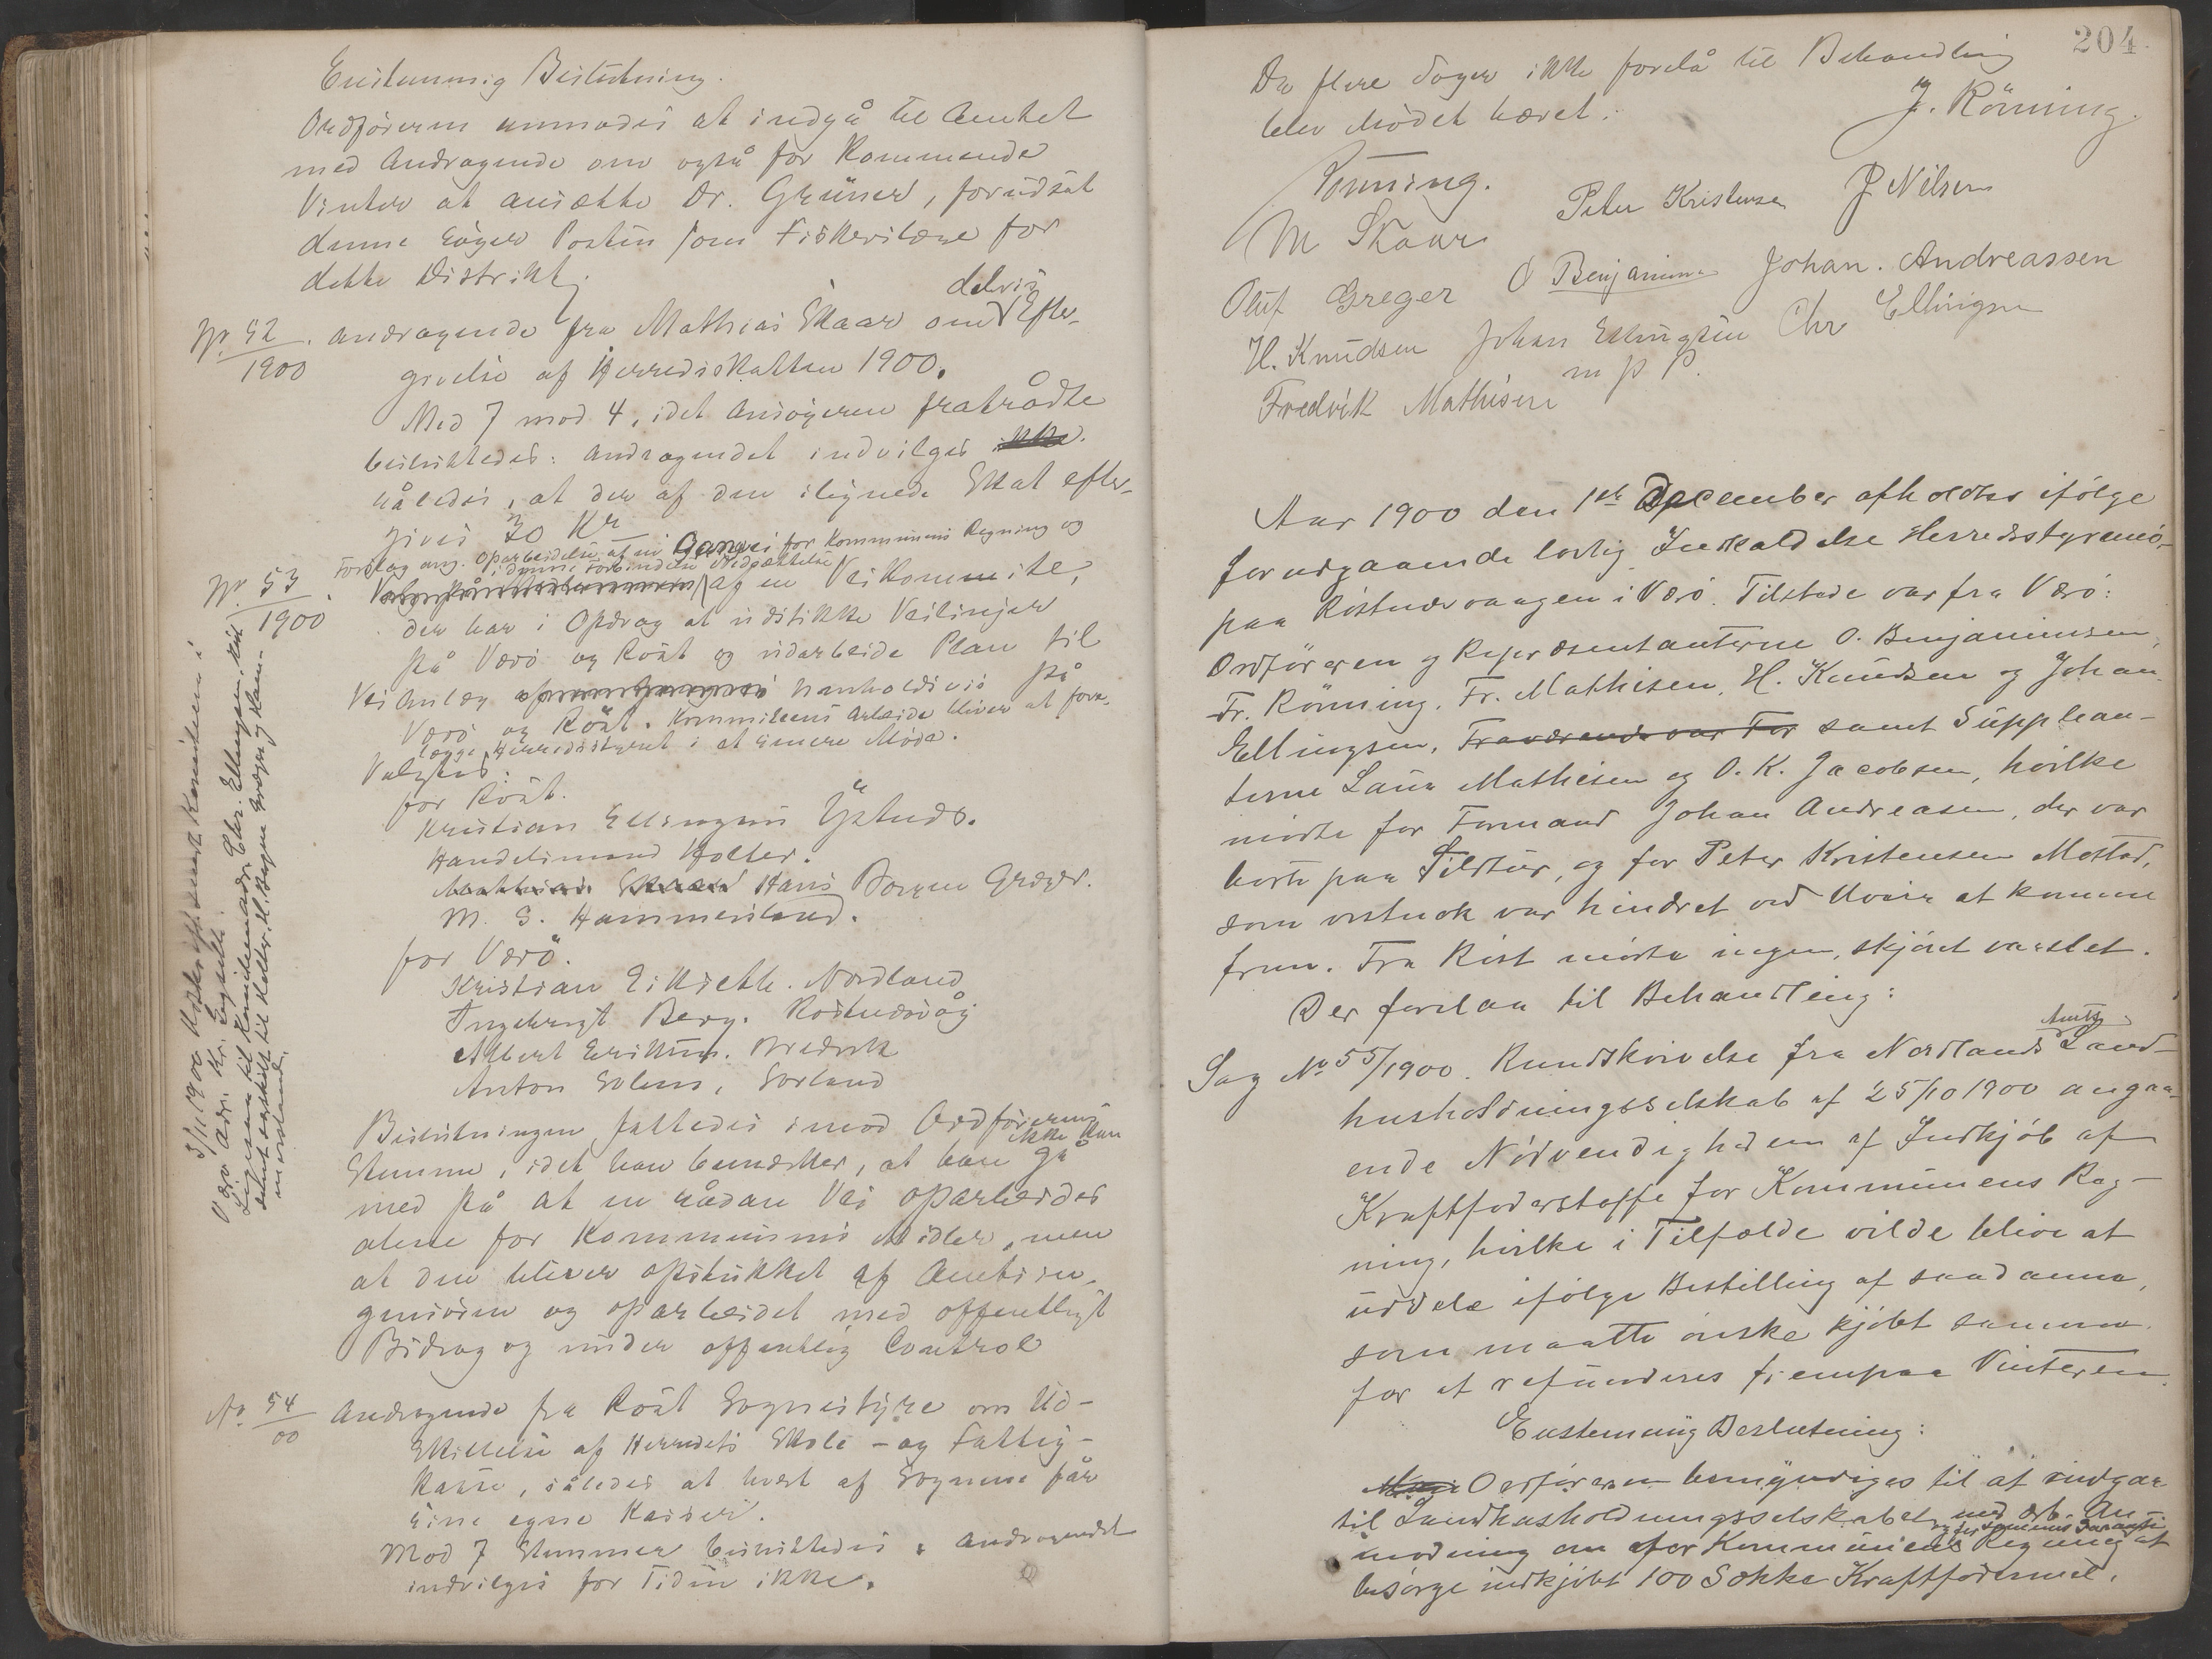 Enstemmig Beslutning.
Ordføreren anmodes at indgå til Amtet
med Andragende om også for Kommende
Vinter at ansætte Dr. Grüner, forudsat
denne søger Posten som Fiskerilæge for
dette Distrikt.
No. 52/1900. Andragende fra Mathias Skaar om delvis Efter-
givelse af Herredsskatten 1900.
Med 7 mod 4, idet Ansøgeren fratrådte
besluttedes: Andragendet indvilges ikke
således, at der af den ilignede Skat efter-
gives 30 Kr
No. 53/1900. Forslag ang. Oparbeidelse af en Gangvei for Kommunens Regning og
i denne Forbindelse Nedsættelse
af en Veikommite,
der har i Opdrag at udstikke Veilinjer
på Værø og Røst og udarbeide Plan til
Veianlæg henholdsvis på
Værø og Røst. Kommiteens Arbeide bliver at fore-
lægge Herredsstyret i et senere Møde.
Valgtes:
for Røst.
Kristian Ellingsen Ystnes.
Handelsmand Holter.
Mathias Skaar Hans Borgen Greger.
M. S. Hammersland.
for Værø.
Kristian Eilertsen. Nordland
Ingebrigt Berg. Røstnesvåg
Albert Eriksen. Breidvik
Anton Solem, Sørland
Beslutningen fattedes imod Ordførerens
Stemme, idet han bemærker, at han ikke kan gå
med på at en sådan Vei oparbeides
alene for Kommunens Midler, men
at den bliver opstukket af Amtsin-
geniøren og oparbeidet med offentligt
Bidrag og under offentlig Control
No. 54/00 Andragende fra Røst Sognestyre om Ud-
skillelse af Herredets Skole- og Fattig-
kasse, således at hvert af Sognene får
sine egne Kasser.
Mod 7 Stemmer besluttedes: Andragendet
indvilges for Tiden ikke.
3/11 1900
Værø adr. Kr.
204.
Da flere Sager ikke forelå til Behandling
blev Mødet hævet.
J. Rönning.
Rönning.
M Skaar Peter Kristensen J Nilsen
Oluf Greger O Benjaminsen Johan. Andreassen
H. Knudsen Johan Ellingsen Chr Ellingsen
m p P.
Fredrik Mathisen
Aar 1900 den 1ste December afholdtes ifølge
forudgaaende lovlig Indkaldelse Herredsstyremø-
paa Røstnesvaagen i Værø. Tilstede var fra Værø:
Ordføreren og Repræsentanterne O. Benjaminsen,
Fr. Rönning, Fr. Mathisen, H. Knudsen og Johan
Ellingsen. Fraværende var For samt Supplean-
terne Laur Mathisen og O. K. Jacobsen, hvilke
mødte for Formand Johan Andreasen, der var
borte paa Sildtur, og for Peter Kristensen Mostad,
som ventelig var hindret ved Uveir at komme
frem. Fra Røst mødte ingen, skjønt varslet.
Der forelaa til Behandling:
Sag No 55/1900. Rundskrivelse fra Nordlands Amts Land-
husholdningsselskab af 25/10 1900 angaa-
ende Nødvendigheden af Indkjøb af
Kraftfoderstoffe for Kommunens Reg-
ning, hvilke i Tilfælde vilde blive at
uddele ifølge Bestilling af saadanne,
som maatte ønske kjøbt samme
for at refunderes frempaa Vinteren.
Enstemmig Beslutning:
Ordføreren bemyndiges til at indgaa
til Landhusholdningsselskabet med ærb. An-
modning om for Kommunens Regning og for sammes Garanti at
besørge indkjøbt 100 Sække Kraftfodermel.